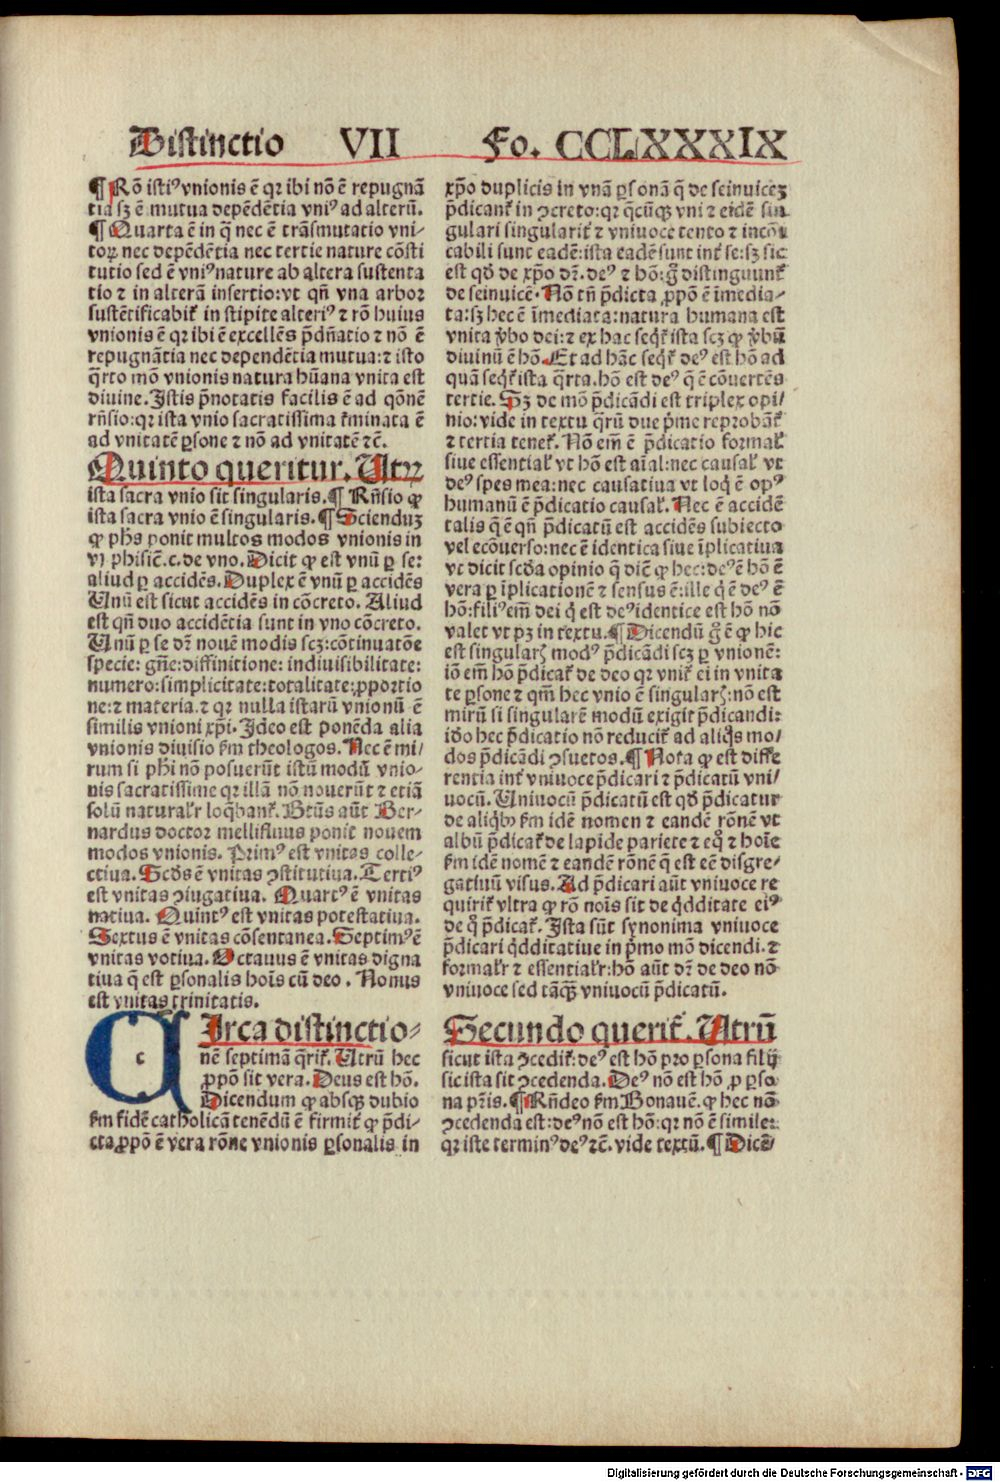 Distinctio VII Fo. CCLXXXIX
¶ Rō isti⁹ vnionis ē qꝛ ibi nō ē repugnā
tia sꝫ ē mutua depēdētia vni⁹ ad alterū.
¶ Quarta ē in q̄ nec ē trāsmutatio vni-
toꝝ nec depēdētia nec tertie nature cōsti
tutio sed ē vni⁹ nature ab altera sustenta
tio ⁊ in alterā insertio: vt qn̄ vna arbor
sustētificabit᷑ in stipite alteri⁹ ⁊ rō huius
vnionis ē qꝛ ibi ē excellēs p̄dn̄atio ⁊ nō ē
repugnātia nec dependētia mutua: ⁊ isto
q̄rto mō vnionis natura hūana vnita est
diuine. Istis p̄notatis facilis ē ad qōnē
rn̄sio: qꝛ ista vnio sacratissima t᷑minata ē
ad vnitatē ꝑsone ⁊ nō ad vnitatē ⁊c̄.
Quinto queritur. Utꝝ
ista sacra vnio sit singularis. ¶ Rn̄sio ꝙ
ista sacra vnio ē singularis. ¶ Scienduꝫ
ꝙ phs̄ ponit multos modos vnionis in
vj phisic̄. c. de vno. Dicit ꝙ est vnū ꝑ se:
aliud ꝑ accidēs. Duplex ē vnū ꝑ accidēs
Unū est sicut accidēs in cōcreto. Aliud
est qn̄ duo accidētia sunt in vno cōcreto.
Unū ꝑ se dr̄ nouē modis scꝫ: cōtinuatōe
specie: gn̄e: diffinitione: indiuisibilitate:
numero: simplicitate: totalitate: ꝓportio
ne: ⁊ materia. ⁊ qꝛ nulla istarū vnionū ē
similis vnioni xp̄i. Ideo est ponēda alia
vnionis diuisio ẜm theologos. Nec ē mi/
rum si phi̅ nō posuerūt istū modū vnio-
nis sacratissime qꝛ illā nō nouerūt ⁊ etiā
solū naturalr̄ loq̄bant᷑. Btūs aūt Ber-
nardus doctor mellifluus ponit nouem
modos vnionis. Prim⁹ est vnitas colle-
ctiua. Scd̄s ē vnitas ꝯstitutiua. Terti⁹
est vnitas ꝯiugatiua. Quart⁹ ē vnitas
natiua. Quint⁹ est vnitas potestatiua.
Sextus ē vnitas cōsentanea. Septim⁹ ē
vnitas votiua. Octauus ē vnitas digna
tiua q̄ est ꝑsonalis hoīs cū deo. Nonus
est vnitas trinitatis.
c
CIrca distinctio-
nē septimā q̄rit᷑. Utrū hec
ꝓpō sit vera. Deus est hō.
Dicendum ꝙ absqꝫ dubio
ẜm fidē catholicā tenēdū ē firmit᷑ ꝙ p̄di-
cta ꝓpō ē vera rōne vnionis ꝑsonalis in
xp̄o duplicis in vnā ꝑsonā q̄ de seinuiceꝫ
p̄dicant᷑ in ꝯcreto: qꝛ q̄cūqꝫ vni ⁊ eidē sin
gulari singularit᷑ ⁊ vniuoce tento ⁊ incōi
cabili sunt eadē: ista eadē sunt int᷑ se: sꝫ sic
est qd̄ de xp̄o dr̄. de⁹ ⁊ hō: g̊ distinguunt᷑
de seinuicē. Nō tn̄ p̄dicta ꝓpō ē īmedia/
ta: sꝫ hec ē īmediata: natura humana est
vnita v̄bo dei: ⁊ ex hac seqt᷑ ista scꝫ ꝙ v̄bū
diuinū ē hō. Et ad hāc seqt᷑ de⁹ est hō ad
quā seqt᷑ ista q̄rta. hō est de⁹ q̄ ē cōuertēs
tertie. Sꝫ de mō p̄dicādi est triplex opi/
nio: vide in textu q̄rū due p̄me reprobāt᷑
⁊ tertia tenet᷑. Nō em̄ ē p̄dicatio formal᷑
siue essential᷑ vt hō est aīal: nec causal᷑ vt
de⁹ spes mea: nec causatiua vt loqt̄ ē op⁹
humanū ē p̄dicatio causal᷑. Nec ē accidē
talis q̄ ē qn̄ p̄dicatū est accidēs subiecto
vel ecōuerso: nec ē identica siue īplicatiua
vt dicit scd̄a opinio q̄ dic̄ ꝙ hec: de⁹ ē hō ē
vera ꝑ īplicationē ⁊ sensus ē: ille q̇ ē de⁹ ē
hō: fili⁹ em̄ dei q̇ est de⁹ identice est hō nō
valet vt pꝫ in textu. ¶ Dicendū g̊ ē ꝙ hic
est singularꝭ mod⁹ p̄dicādi scꝫ ꝑ vnionē:
iō em̄ hō p̄dicat᷑ de deo qꝛ vnit᷑ ei in vnita
te ꝑsone ⁊ qm̄ hec vnio ē singularꝭ: nō est
mirū si singularē modū exigit p̄dicandi:
id̄o hec p̄dicatio nō reducit᷑ ad aliq̊s mo/
dos p̄dicādi ꝯsuetos. ¶ Nota ꝙ est diffe
rentia int᷑ vniuoce p̄dicari ⁊ p̄dicatū vni/
uocū. Uniuocū p̄dicatū est qd̄ p̄dicatur
de aliqb̄ꝰ ẜm idē nomen ⁊ eandē rōnē vt
albū p̄dicat᷑ de lapide pariete ⁊ eq̊ ⁊ hoīe
ẜm idē nomē ⁊ eandē rōnē q̄ est eē disgre-
gatiuū visus. Ad p̄dicari aūt vniuoce re
quirit᷑ vltra ꝙ rō noīs sit de qd̄ditate ei⁹
de q̊ p̄dicat᷑. Ista sūt synonima vniuoce
p̄dicari qd̄ditatiue in p̄mo mō dicendi. ⁊
formalr̄ ⁊ essentialr̄: hō aūt dr̄ de deo nō
vniuoce sed tāqꝫ vniuocū p̄dicatū.
Secundo querit᷑. Utrū
sicut ista ꝯcedit᷑: de⁹ est hō pro ꝑsona filij
sic ista sit ꝯcedenda. De⁹ nō est hō ꝓ ꝑso
na pr̄is. ¶ Rn̄deo ẜm Bonauē. ꝙ hec nō
ꝯcedenda est: de⁹ nō est hō: qꝛ nō ē simile:
qꝛ iste termin⁹ de⁹ ⁊c̄. vide textū. ¶ Dicē/
Digitalisierung gefördert durch die Deutsche Forschungsgemeinschaft - DFG